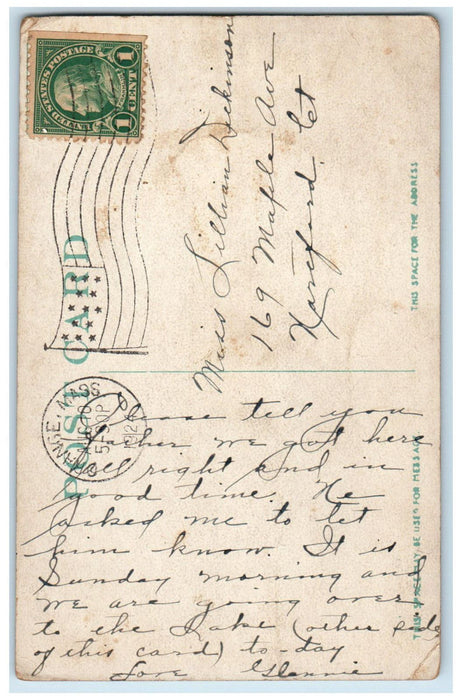 UNITED STATES POSTAGE
1 CENT 1
POST CARD
MASS
Miss Lillian Dickinson
169 Maple Ave
Hartford Ct
THIS SPACE FOR THE ADDRESS
THIS SPACE MAY BE USED FOR MESSAGE
Please tell you
father we got here
all right and in
good time. He
asked me to let
him know. It is
Sunday morning and
we are going over
to the Lake (other side
of this card) to-day
Love Glennie